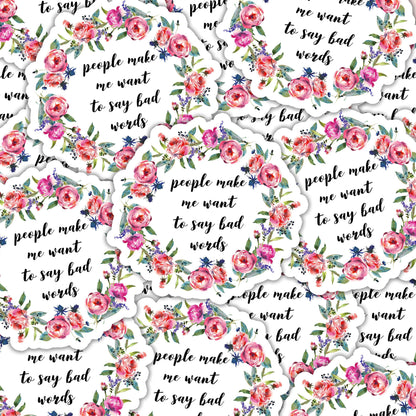 people make
me want
to say bad
words
me want
to say bad
words
people make
me want
to say bad
words
people make
me want
to say bad
words
people make
me want
to say bad
words
people make
me want
to say bad
words
people make
me want
to say bad
words